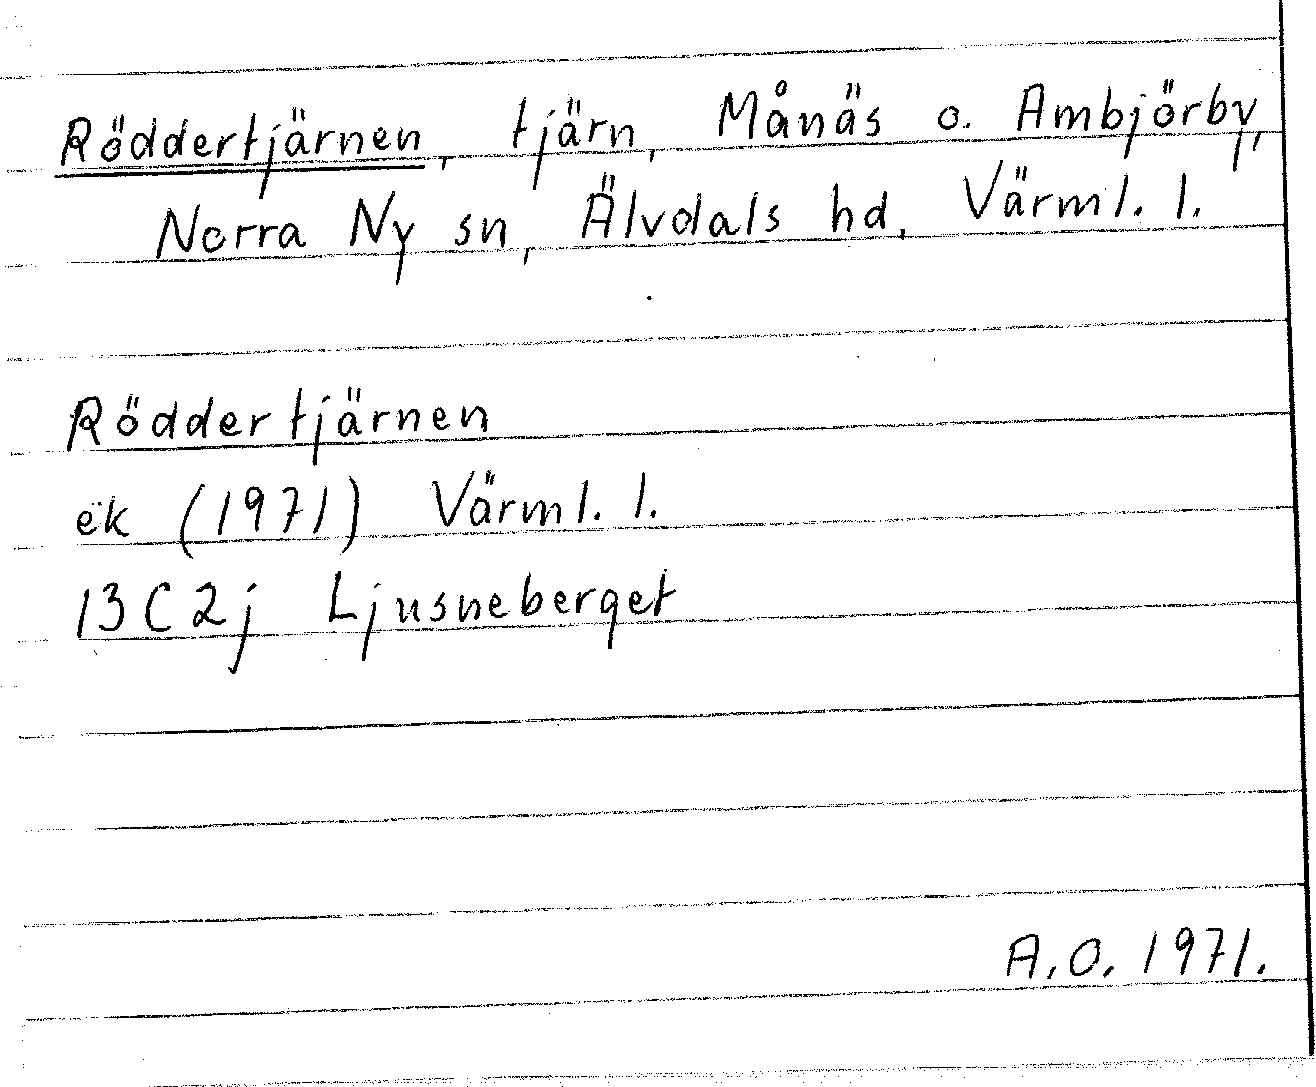 Röddertjärnen, tjärn, Månäs o. Ambjörby,
Norra Ny sn, Älvdals hd, Värml. l.
Röddertjärnen
ek (1971) Värml. l.
13C2j Ljusneberget
A.O. 1971.